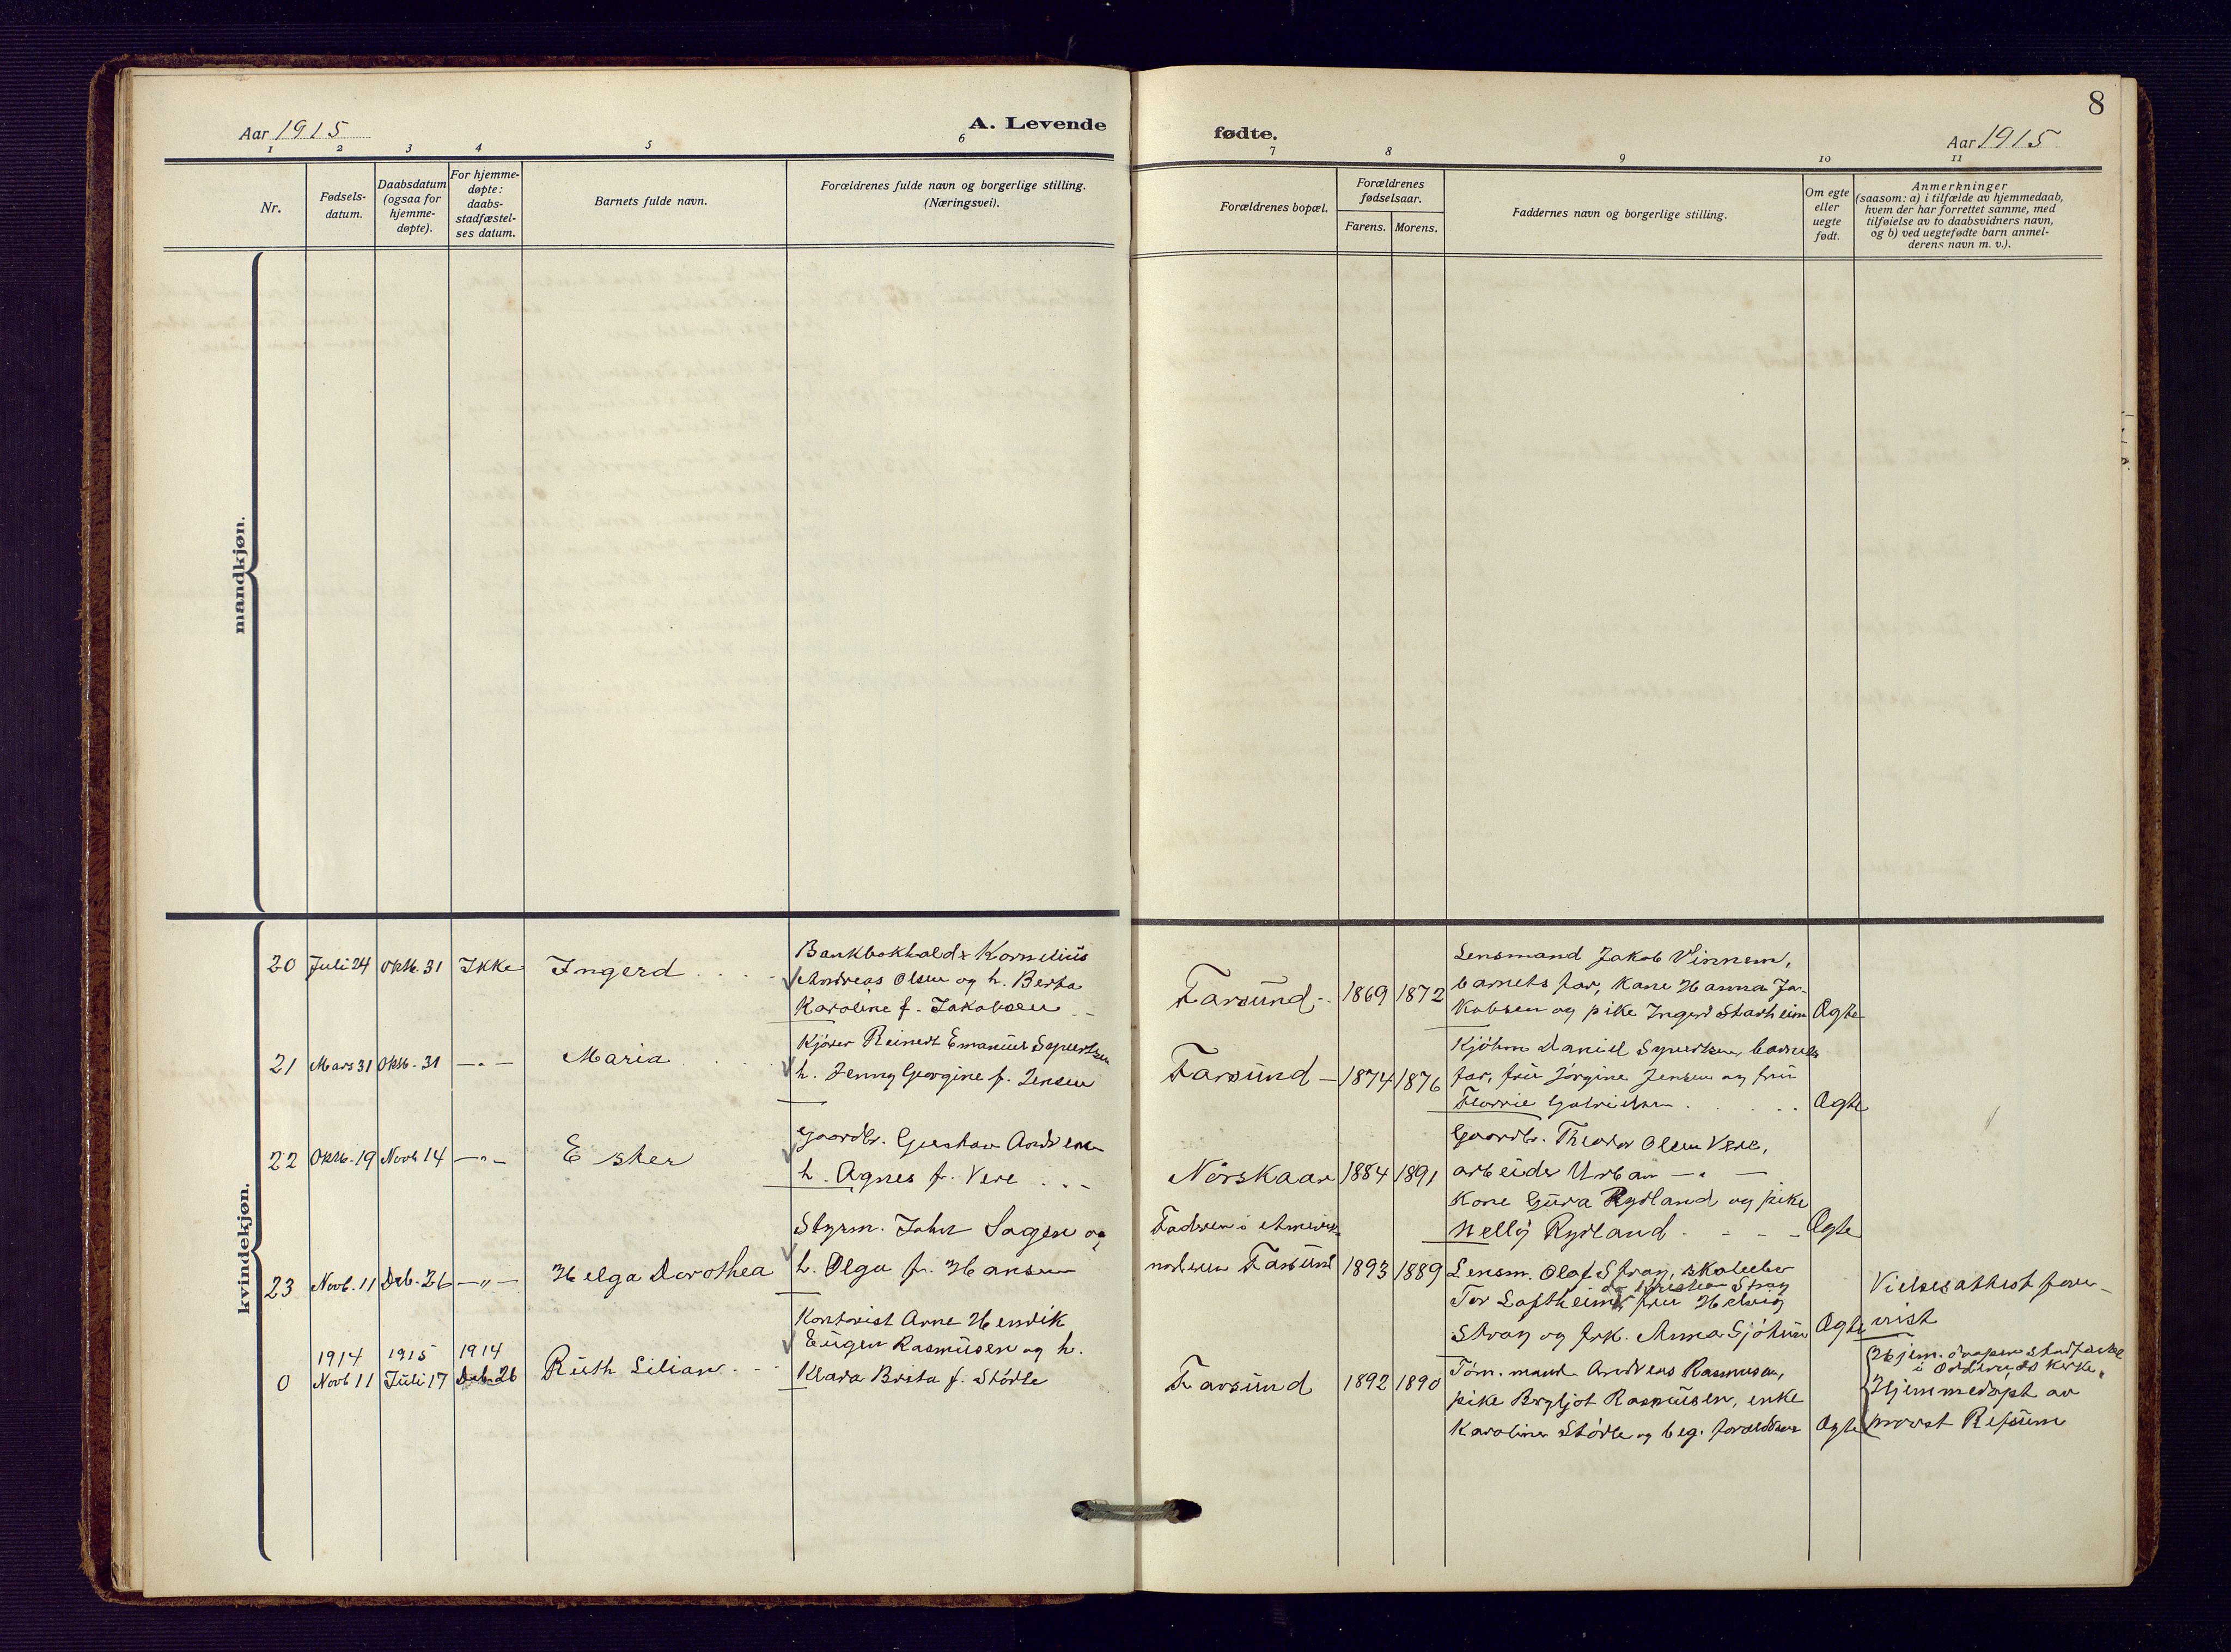 8
Aar 1915
A. Levende
fødte.
Aar 1915
1 2 3 4 5 6 7 8 9 10 11
Nr.
Fødsels-
datum.
Daabsdatum
(ogsaa for
hjemme-
døpte).
For hjemme-
døpte:
daabs-
stadfæstel-
ses datum.
Barnets fulde navn.
Forældrenes fulde navn og borgerlige stilling.
(Næringsvei).
Forældrenes bopæl.
Forældrenes
fødselsaar.
Farens. Morens.
Faddernes navn og borgerlige stilling.
Om egte
eller
uegte
født.
Anmerkninger
(saasom: a) i tilfælde av hjemmedaab,
hvem der har forrettet samme, med
tilføielse av to daabsvidners navn,
og b) ved uegtefødte barn anmel-
derens navn m. v.).
mandkjøn.
kvindekjøn.
20 Juli 24 Oktb. 31 Ikke Ingerd
Bankbokhold. Kornelius
Andreas Olsen og h. Berta
Karoline f. Jakobsen
Farsund 1869 1872
Lensmand Jakob Vinnem,
barnets far, Kone Hanna Ja-
kobsen og pike Ingerd Stadheim Ægte
21 Mars 31 Oktb. 31 —"— Maria
Reinert Emanuel Syvertsen
h. Jenny Georgine f. Jensen
Farsund 1874 1876
Kjøbm Daniel Syvertsen, barnets
far, fru Jørgine Jensen og fru
Ægte
22 Oktb. 19 Novb 14 —"— Ester
Gaardbr. Gustav Andersen
h. Agnes f. Vere
Nørskaar 1884 1891
Gaardbr. Theodor Olsen Vere,
arbeider Urban —"—
Kone Gura Rydland og pike
Nelly Rydland Ægte
23 Novb. 11 Deb. 26 —"— Helga Dorothea
Styrm. John Sagen og
h. Olga f. Hansen
Faderen i Amerika
moderen Farsund 1893 1889
Lensm. Olaf Stray, skolebest
og Kristian Stray
Tor Loftheim, fru Helwig
Stray og frk. Anna Ægte
Vielsesattest fore-
vist
0 1914 Novb 11 1915 Juli 17 1914 Deb. 26 Ruth Lilian
Kontorist Arne Henrik
Eugen Rasmusen og h.
Klara Brita f. Størle
Farsund 1892 1890
Tøm. mand Andreas Rasmusen,
pike Bergljot Rasmusen, enke
Karoline Størle og beg. forældrene Ægte
Hjem. daapen stadfæstet
i Oddernes Kirke.
Hjemmedøpt av
provst Refsum